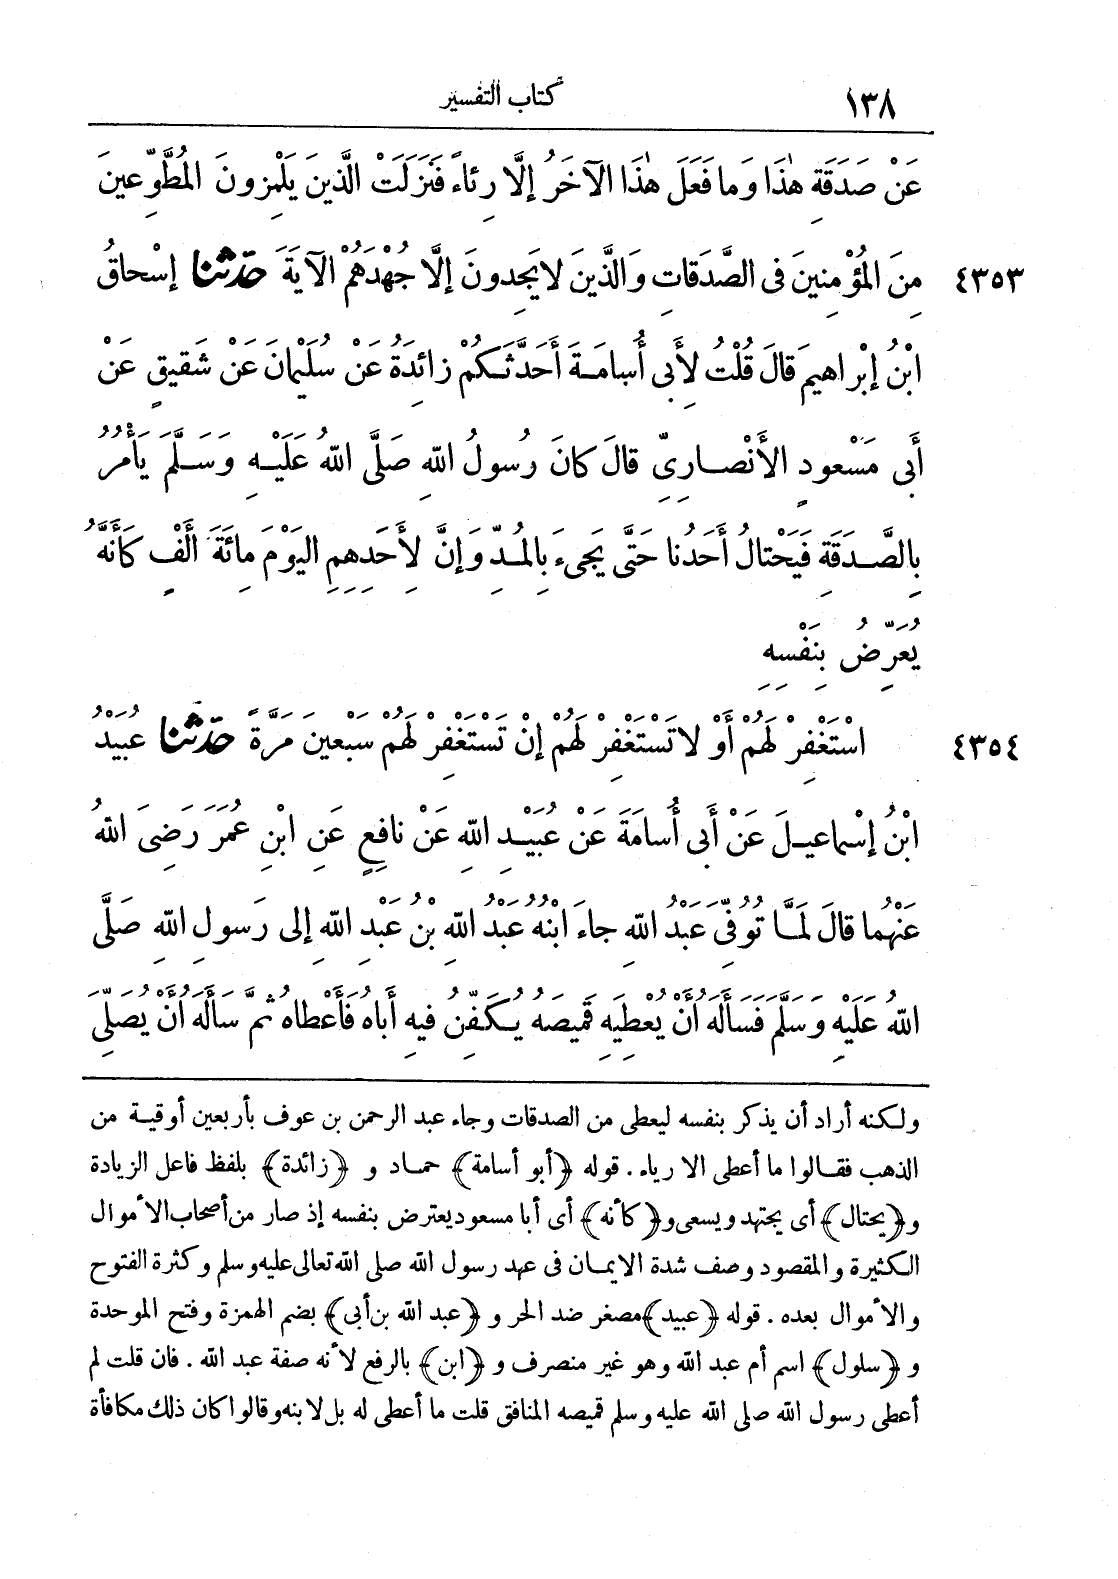 ١٣٨ كتاب التفسير
عَنْ صَدَقَةِ هٰذَا وَمَا فَعَلَ هٰذَا الآخَرُ إِلَّا رِئَاءً فَنَزَلَتْ الَّذِينَ يَلْمِزُونَ المُطَّوِّعِينَ
٤٣٥٣ مِنَ المُؤْمِنِينَ فِى الصَّدَقَاتِ وَالَّذِينَ لَا يَجِدُونَ إِلَّا جُهْدَهُمْ الآيَةَ حَدَّثَنَا إِسْحَاقُ
ابْنُ إِبْرَاهِيمَ قَالَ قُلْتُ لِأَبِى أُسَامَةَ أَحَدَّثَكُمْ زَائِدَةُ عَنْ سُلَيْمَانَ عَنْ شَقِيقٍ عَنْ
أَبِى مَسْعُودٍ الأَنْصَارِىِّ قَالَ كَانَ رَسُولُ اللهِ صَلَّى اللهُ عَلَيْهِ وَسَلَّمَ يَأْمُرُ
بِالصَّدَقَةِ فَيَحْتَالُ أَحَدُنَا حَتَّى يَجِىءَ بِالمُدِّ وَإِنَّ لِأَحَدِهِمِ اليَوْمَ مِائَةَ أَلْفٍ كَأَنَّهُ
يُعَرِّضُ بِنَفْسِهِ
٤٣٥٤ اسْتَغْفِرْ لَهُمْ أَوْ لَا تَسْتَغْفِرْ لَهُمْ إِنْ تَسْتَغْفِرْ لَهُمْ سَبْعِينَ مَرَّةً حَدَّثَنَا عُبَيْدُ
ابْنُ إِسْمَاعِيلَ عَنْ أَبِى أُسَامَةَ عَنْ عُبَيْدِ اللهِ عَنْ نَافِعٍ عَنِ ابْنِ عُمَرَ رَضِىَ اللهُ
عَنْهُمَا قَالَ لَمَّا تُوُفِّىَ عَبْدُ اللهِ جَاءَ ابْنُهُ عَبْدُ اللهِ بْنُ عَبْدِ اللهِ إِلَى رَسُولِ اللهِ صَلَّى
اللهُ عَلَيْهِ وَسَلَّمَ فَسَأَلَهُ أَنْ يُعْطِيَهِ قَمِيصَهُ يُكَفِّنُ فِيهِ أَبَاهُ فَأَعْطَاهُ ثُمَّ سَأَلَهُ أَنْ يُصَلِّىَ
ولكنه أراد أن يذكر بنفسه ليعطى من الصدقات وجاء عبد الرحمن بن عوف بأربعين أوقية من
الذهب فقالوا ما أعطى الا رياء. قوله ﴿أبو أسامة﴾ حماد و ﴿زائدة﴾ بلفظ فاعل الزيادة
و﴿يحتال﴾ أى يجتهد ويسعى و﴿كأنه﴾ أى أبا مسعود يعترض بنفسه إذ صار من أصحاب الأموال
الكثيرة والمقصود وصف شدة الايمان فى عهد رسول الله صلى الله تعالى عليه وسلم وكثرة الفتوح
والأموال بعده. قوله ﴿عبيد﴾ مصغر ضد الحر و ﴿عبد الله بن أبى﴾ بضم الهمزة وفتح الموحدة
و ﴿سلول﴾ اسم أم عبد الله وهو غير منصرف و ﴿ابن﴾ بالرفع لأنه صفة عبد الله. فان قلت لم
أعطى رسول الله صلى الله عليه وسلم قميصه المنافق قلت ما أعطى له بل لابنه وقالوا كان ذلك مكافأة